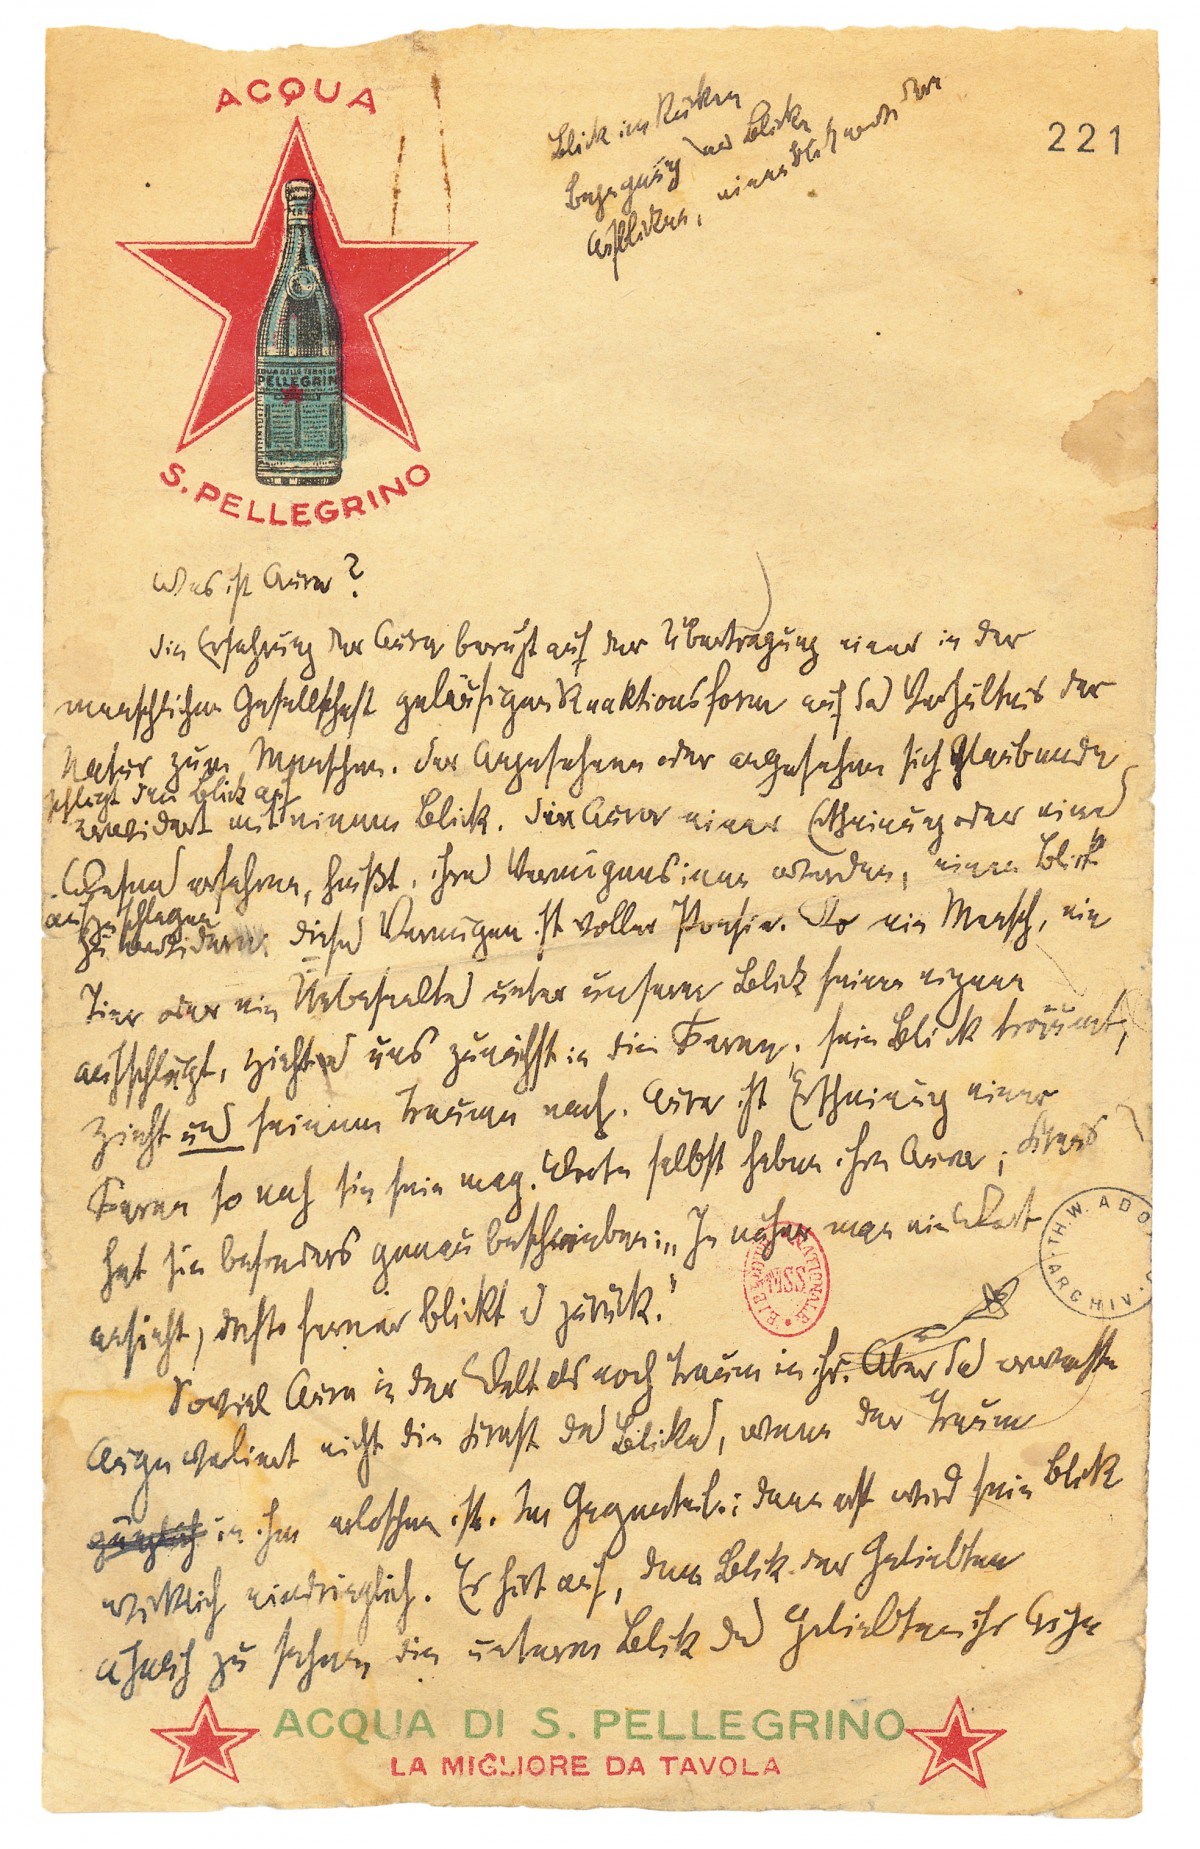 ACQUA
221
Blick im Rücken
Begegnung der Blicke
Aufblicken, einen Blick
PELLEGRIN
S. PELLEGRINO
Was ist Aura?
Die Erfahrung der Aura beruht auf der Übertragung einer in der
menschlichen Gesellschaft geläufigen Reaktionsform auf das Verhältnis der
Natur zum Menschen. Der Angesehene oder angesehen sich Glaubende
schlägt den Blick auf
erwidert mit einem Blick. Die Aura einer Erscheinung oder eines
Wesens erfahren, heißt, ihres Vermögens inne werden, einen Blick
aufzuschlagen
zu erwidern. dieses Vermögen ist voller Poesie. Wo ein Mensch, ein
Tier oder ein Unbeseeltes unter unserm Blick seinen eignen
aufschlägt, zieht es uns zunächst in die Ferne; sein Blick träumt,
zieht uns seinem Traume nach. Aura ist Erscheinung einer
Ferne so nah sie sein mag. Worte selbst haben ihre Aura; Kraus
hat sie besonders genau beschrieben: „Je näher man ein Wort
ansieht, desto ferner blickt es zurück."
Soviel Aura in der Welt als noch Traum in ihr. Aber das erwachte
Auge verlernt nicht die Kraft des Blicks, wenn der Traum
gänzlich in ihm erloschen ist. Im Gegenteil: dann erst wird sein Blick
wirklich eindringlich. Er hört auf, dem Blick der Geliebten
ähnlich zu sehen, die unterm Blick des Geliebten ihr Auge
TH. W. ADO
ARCHIV
BIBLIOTHÈQUE NATIONALE
MSS
ACQUA DI S. PELLEGRINO
LA MIGLIORE DA TAVOLA